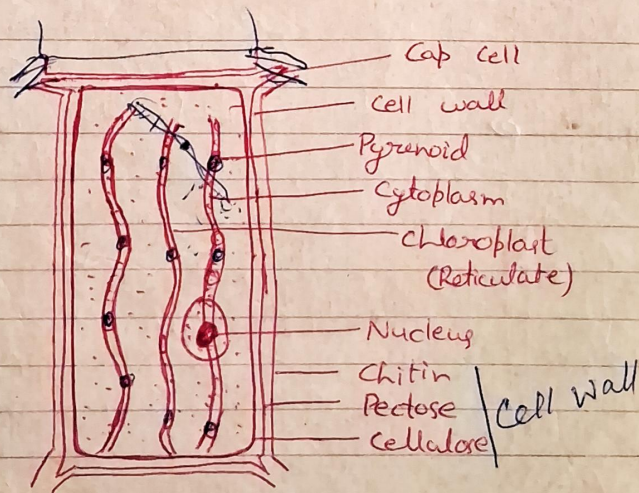 Cap Cell
Cell wall
Pyrenoid
Cytoplasm
Chloroplast
(Reticulate)
Nucleus
Chitin
Pectose
Cellulose
Cell wall